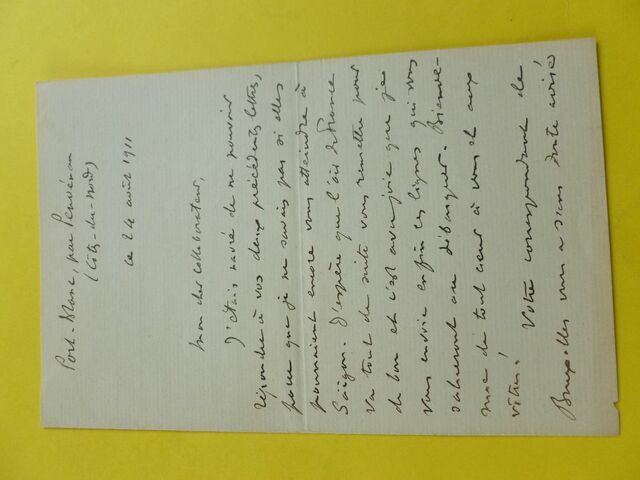 Port-Blanc, par Penvénan
(Côtes-du-Nord)
ce 24 août 1911
Mon cher collaborateur,
J'étais navré de ne pouvoir
répondre à vos deux précédentes lettres,
parce que je ne savais pas si elles
pourraient encore vous atteindre à
Saïgon. J'espère que l'air de France
va tout de suite vous remettre pour
de bon et c'est avec joie que je
vous envoie enfin ces lignes qui vous
salueront au débarquer. Bienve-
nue de tout cœur à vous et aux
vôtres!
Votre correspondant de
Bruxelles vous a sans doute avisé